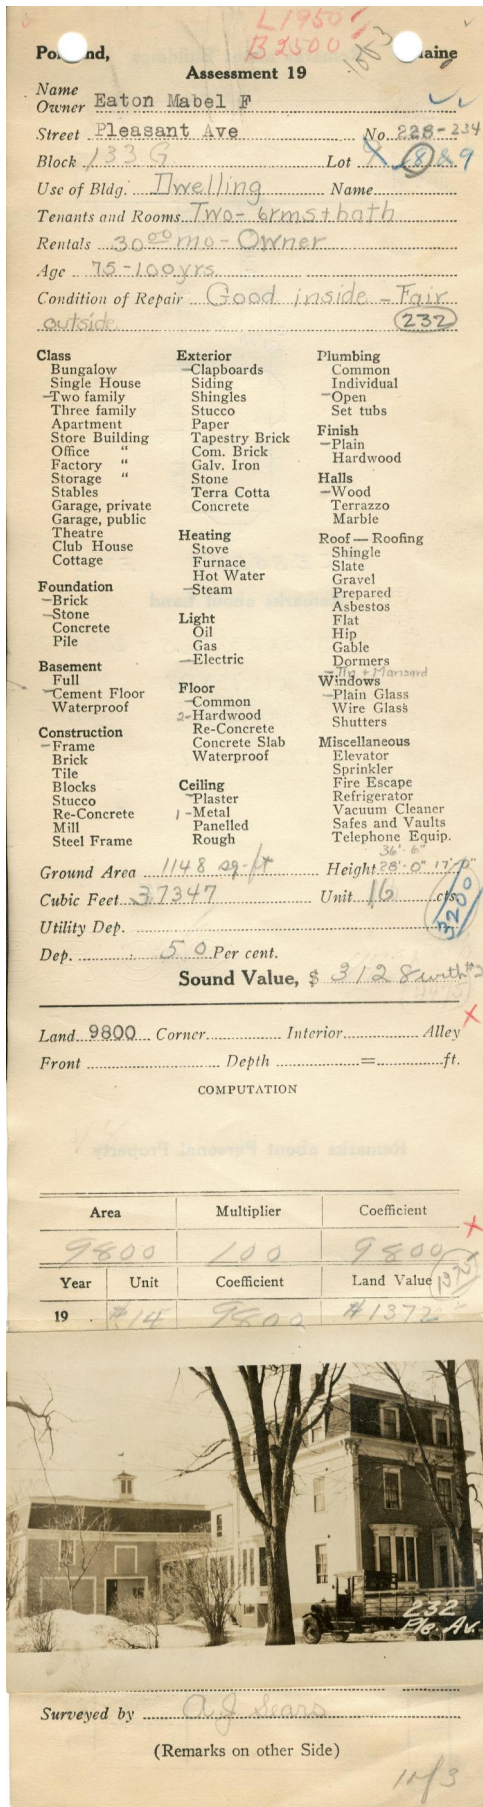 L 1950
B 2500
1003
Po nd, aine
Assessment 19
Name
Owner Eaton Mabel F
Street Pleasant Ave No. 228-234
Block 133 G Lot 8 & 9
Use of Bldg. Dwelling Name
Tenants and Rooms Two - 6rms + bath
Rentals 30 00 mo - Owner
Age 75-100yrs
Condition of Repair Good inside - Fair
outside 232
Class
Bungalow
Single House
-Two family
Three family
Apartment
Store Building
Office "
Factory "
Storage "
Stables
Garage, private
Garage, public
Theatre
Club House
Cottage
Foundation
-Brick
-Stone
Concrete
Pile
Basement
Full
-Cement Floor
Waterproof
Construction
-Frame
Brick
Tile
Blocks
Stucco
Re-Concrete
Mill
Steel Frame
Exterior
-Clapboards
Siding
Shingles
Stucco
Paper
Tapestry Brick
Com. Brick
Galv. Iron
Stone
Terra Cotta
Concrete
Heating
Stove
Furnace
Hot Water
-Steam
Light
Oil
Gas
-Electric
Floor
-Common
2-Hardwood
Re-Concrete
Concrete Slab
Waterproof
Ceiling
-Plaster
1-Metal
Panelled
Rough
Plumbing
Common
Individual
-Open
Set tubs
Finish
-Plain
Hardwood
Halls
-Wood
Terrazzo
Marble
Roof — Roofing
Shingle
Slate
Gravel
Prepared
Asbestos
Flat
Hip
Gable
Dormers
-Tin + Mansard
Windows
-Plain Glass
Wire Glass
Shutters
Miscellaneous
Elevator
Sprinkler
Fire Escape
Refrigerator
Vacuum Cleaner
Safes and Vaults
Telephone Equip.
36'-6"
Ground Area 1148 sq-ft Height 28'-0" 17'-0"
Cubic Feet 37347 Unit 16 cts.
3200
Utility Dep.
Dep. 50 Per cent.
Sound Value, $ 3128 with #2
Land 9800 Corner Interior Alley
Front Depth = ft.
COMPUTATION
Area Multiplier Coefficient
9800 100 9800
Year Unit Coefficient Land Value 1975
19 $14 9800 $1372
232
Ple. Av.
Surveyed by A J Sears
(Remarks on other Side)